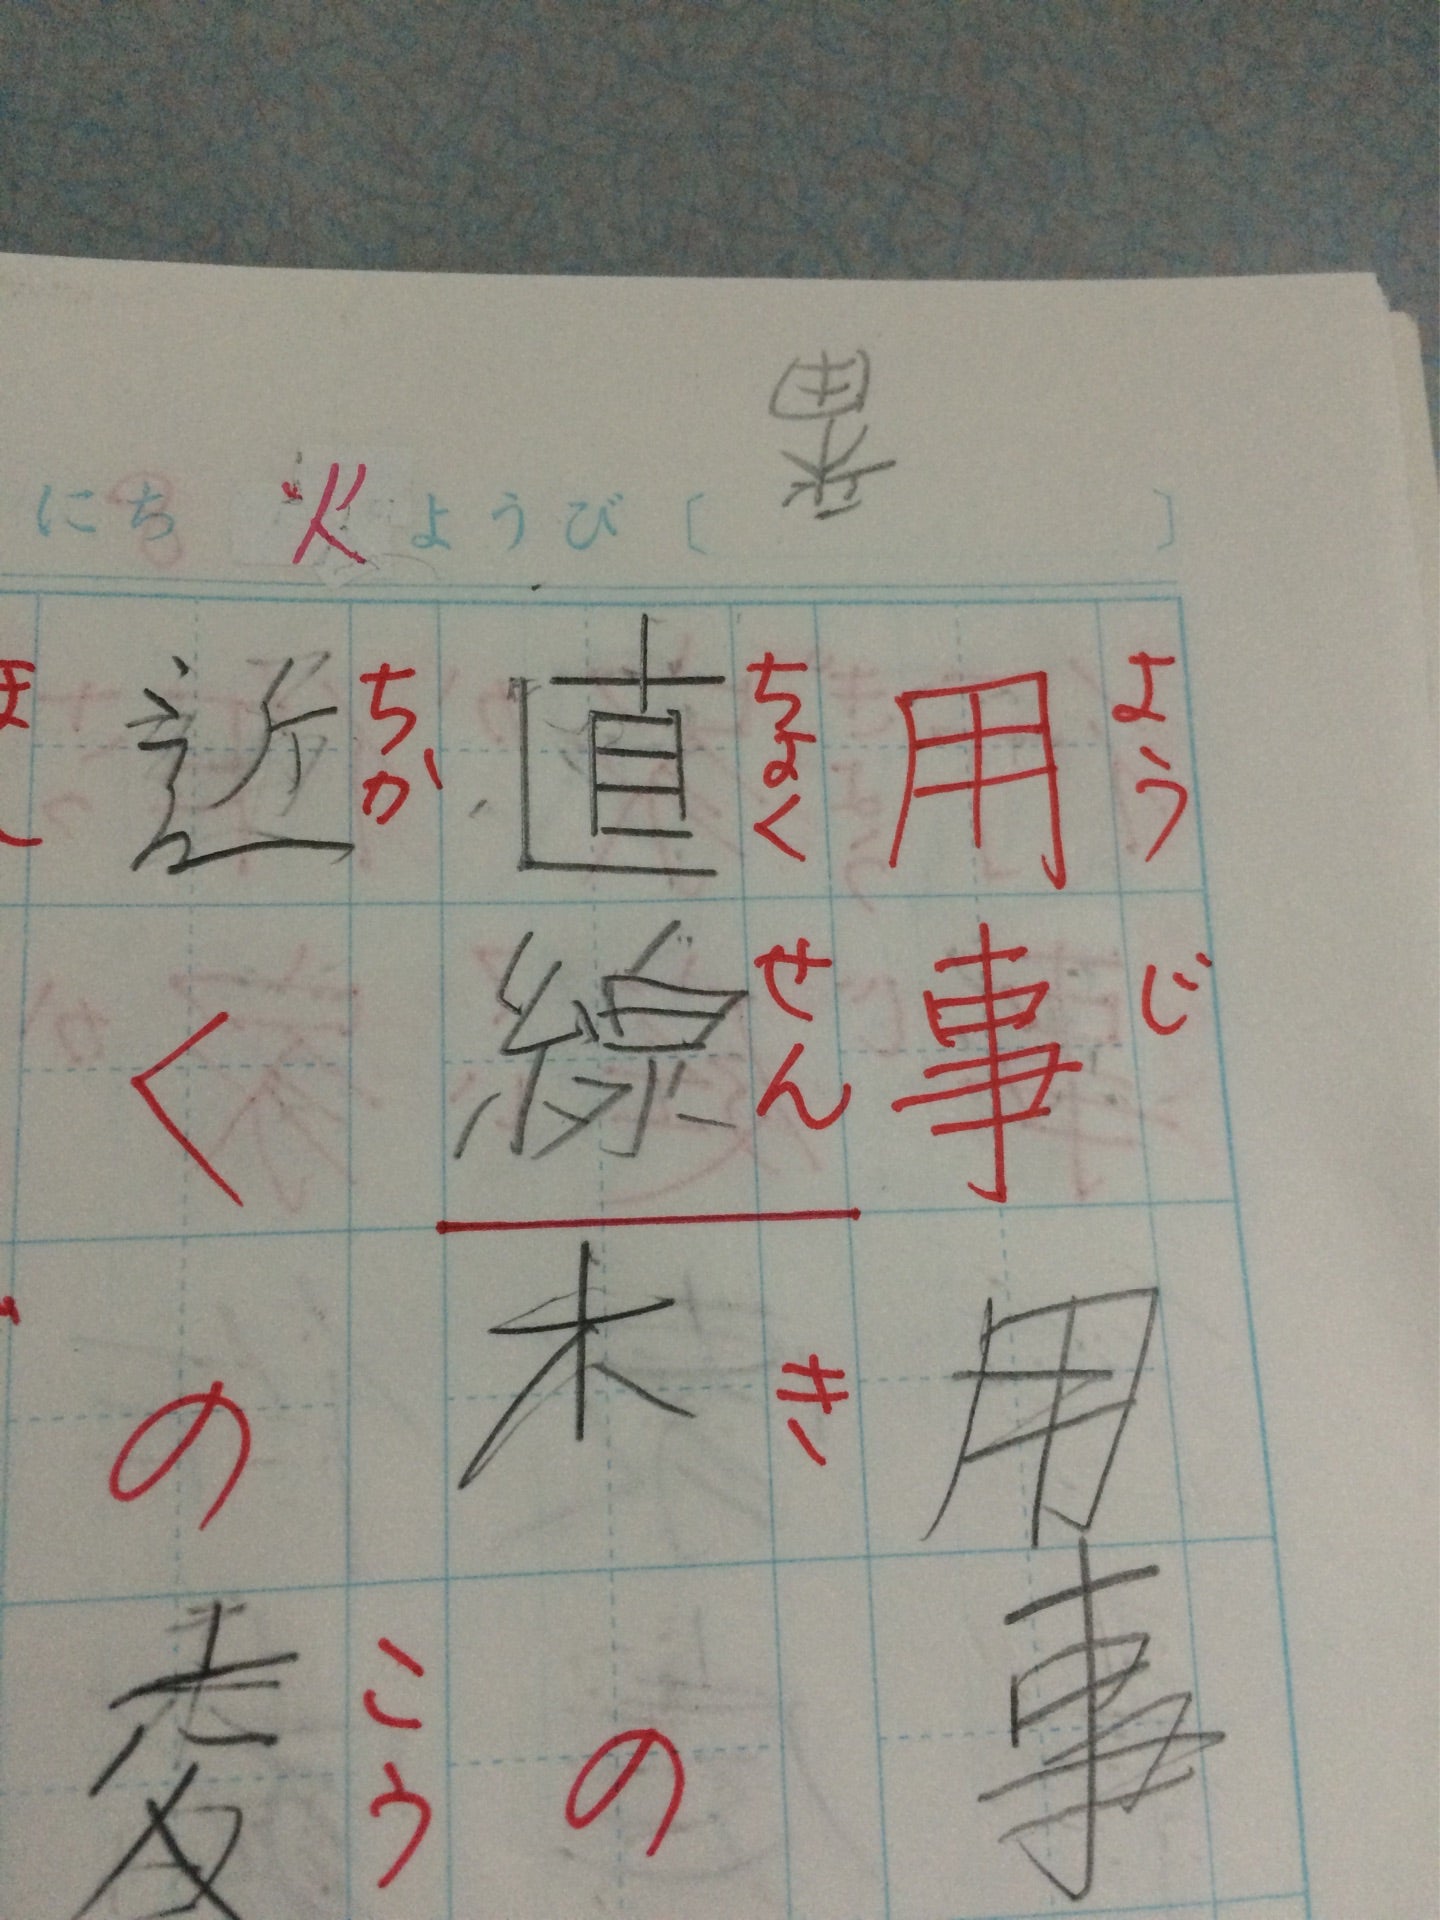 にち 火 ようび〔 〕
ようじ
用事用事
ちょくせん き
直線木の
ちか こう
近くの